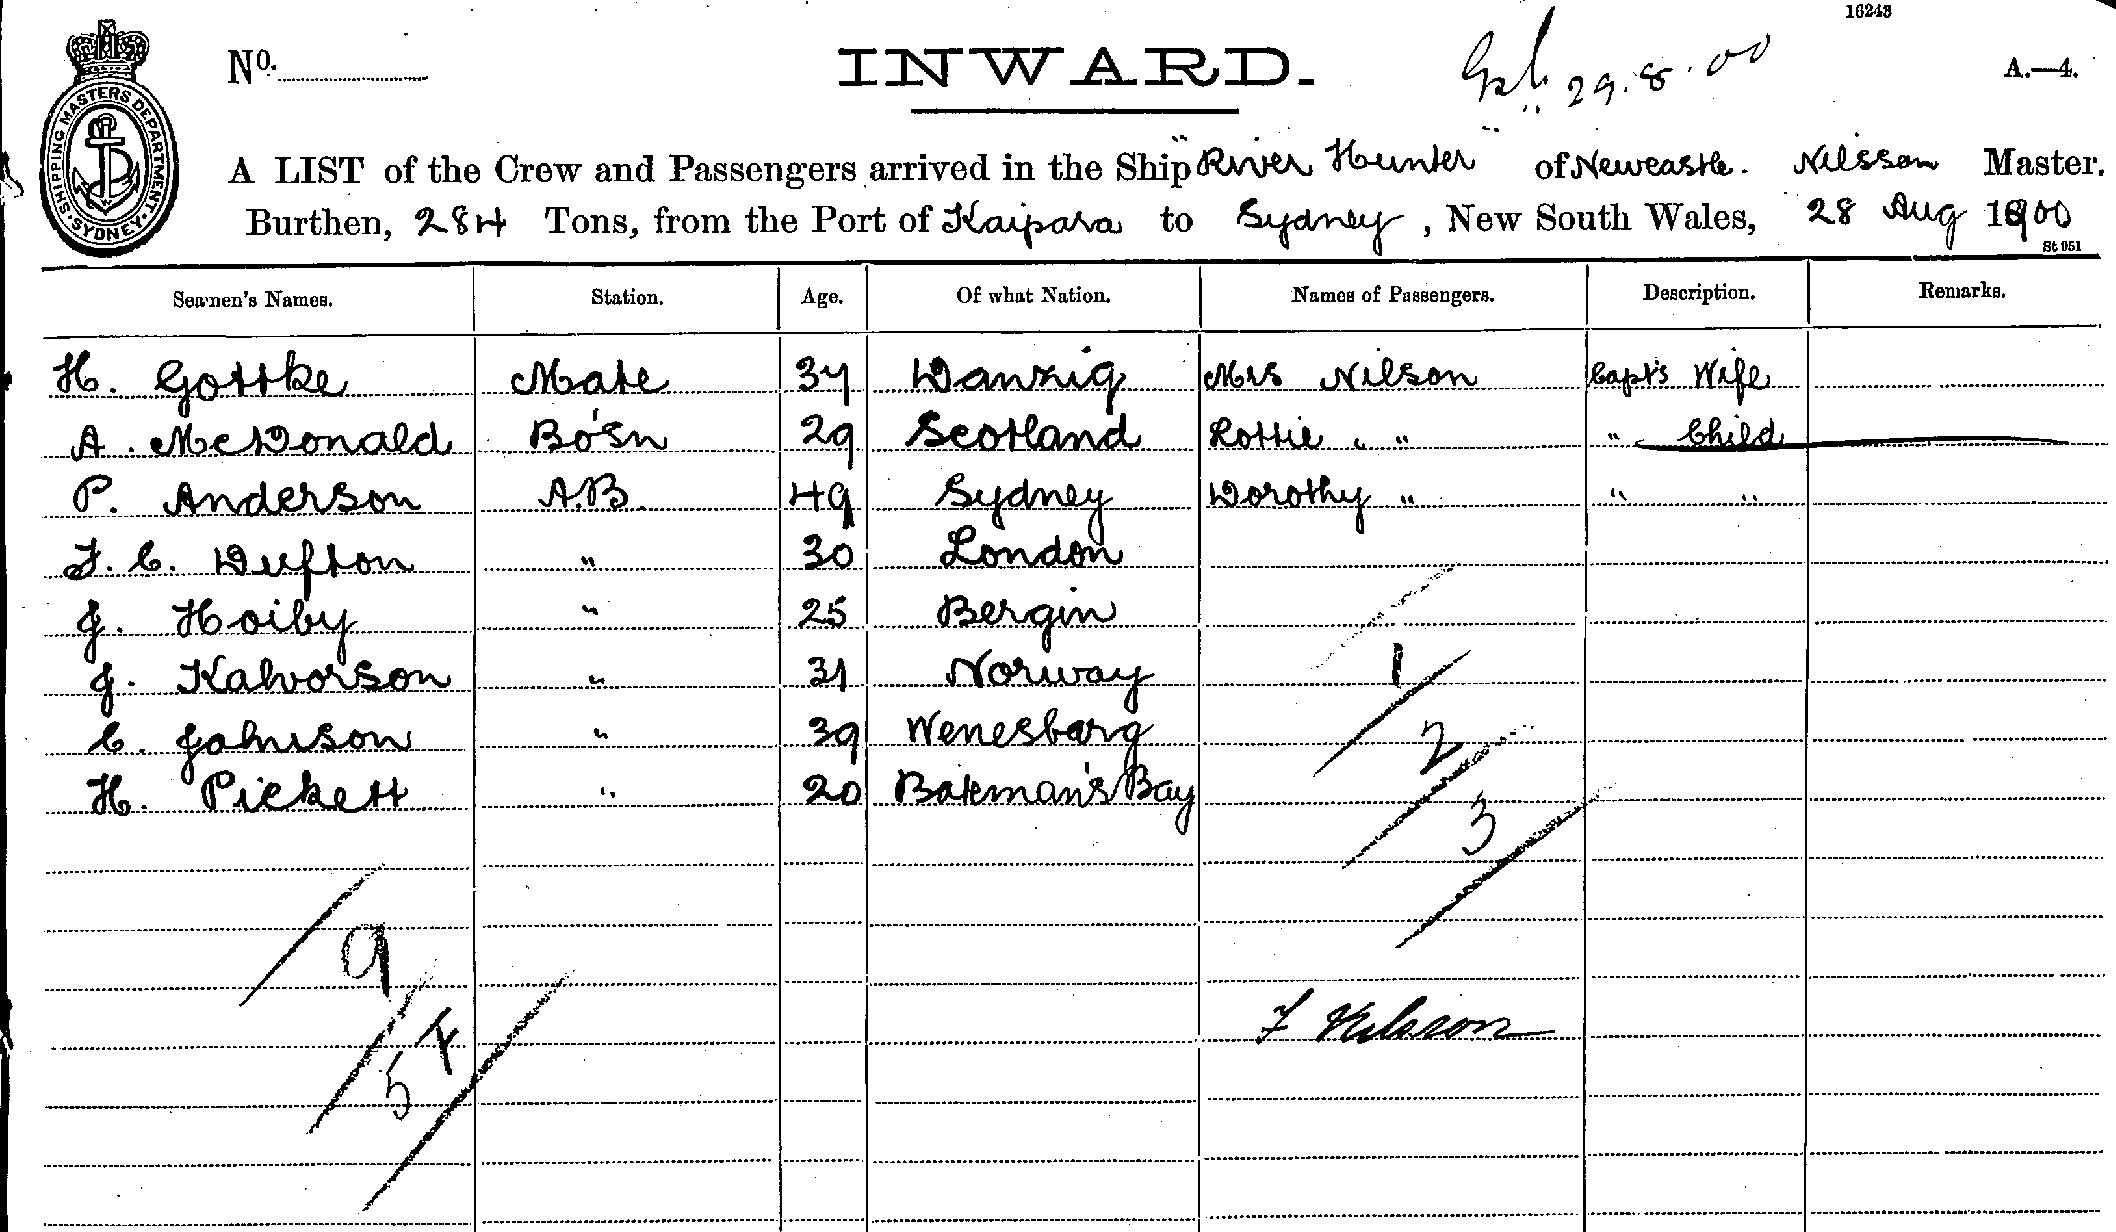 16243
No. INWARD. 29.8.00 A.—4.
SHIPPING MASTERS DEPARTMENT · SYDNEY ·
A LIST of the Crew and Passengers arrived in the Ship "River Hunter" of Newcastle. Nilsson Master.
Burthen, 284 Tons, from the Port of Kaipara to Sydney, New South Wales, 28 Aug 1900
St 951
Seamen's Names. Station. Age. Of what Nation. Names of Passengers. Description. Remarks.
H. Gottke Mate 34 Danzig Mrs Nilson Capt's Wife
A. McDonald Bo'sn 29 Scotland Lottie " " " Child
P. Anderson A.B. 49 Sydney Dorothy " " "
F. C. Dufton " 30 London
J. Hoiby " 25 Bergin
J. Kalvorson " 31 Norway
C. Johnson " 39 Wenesbarg
H. Pickett " 20 Bateman's Bay
1
2
3
9
F Nilsson
5 4